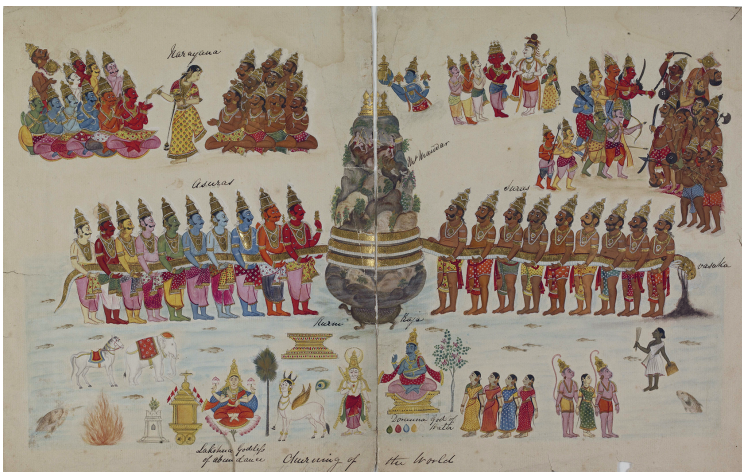 Narayana
Mt Mandar
Asuras
Suras
Vasuka
Kurm Raja
Lakshmi Godess
of abundance
God of
Churning of the World